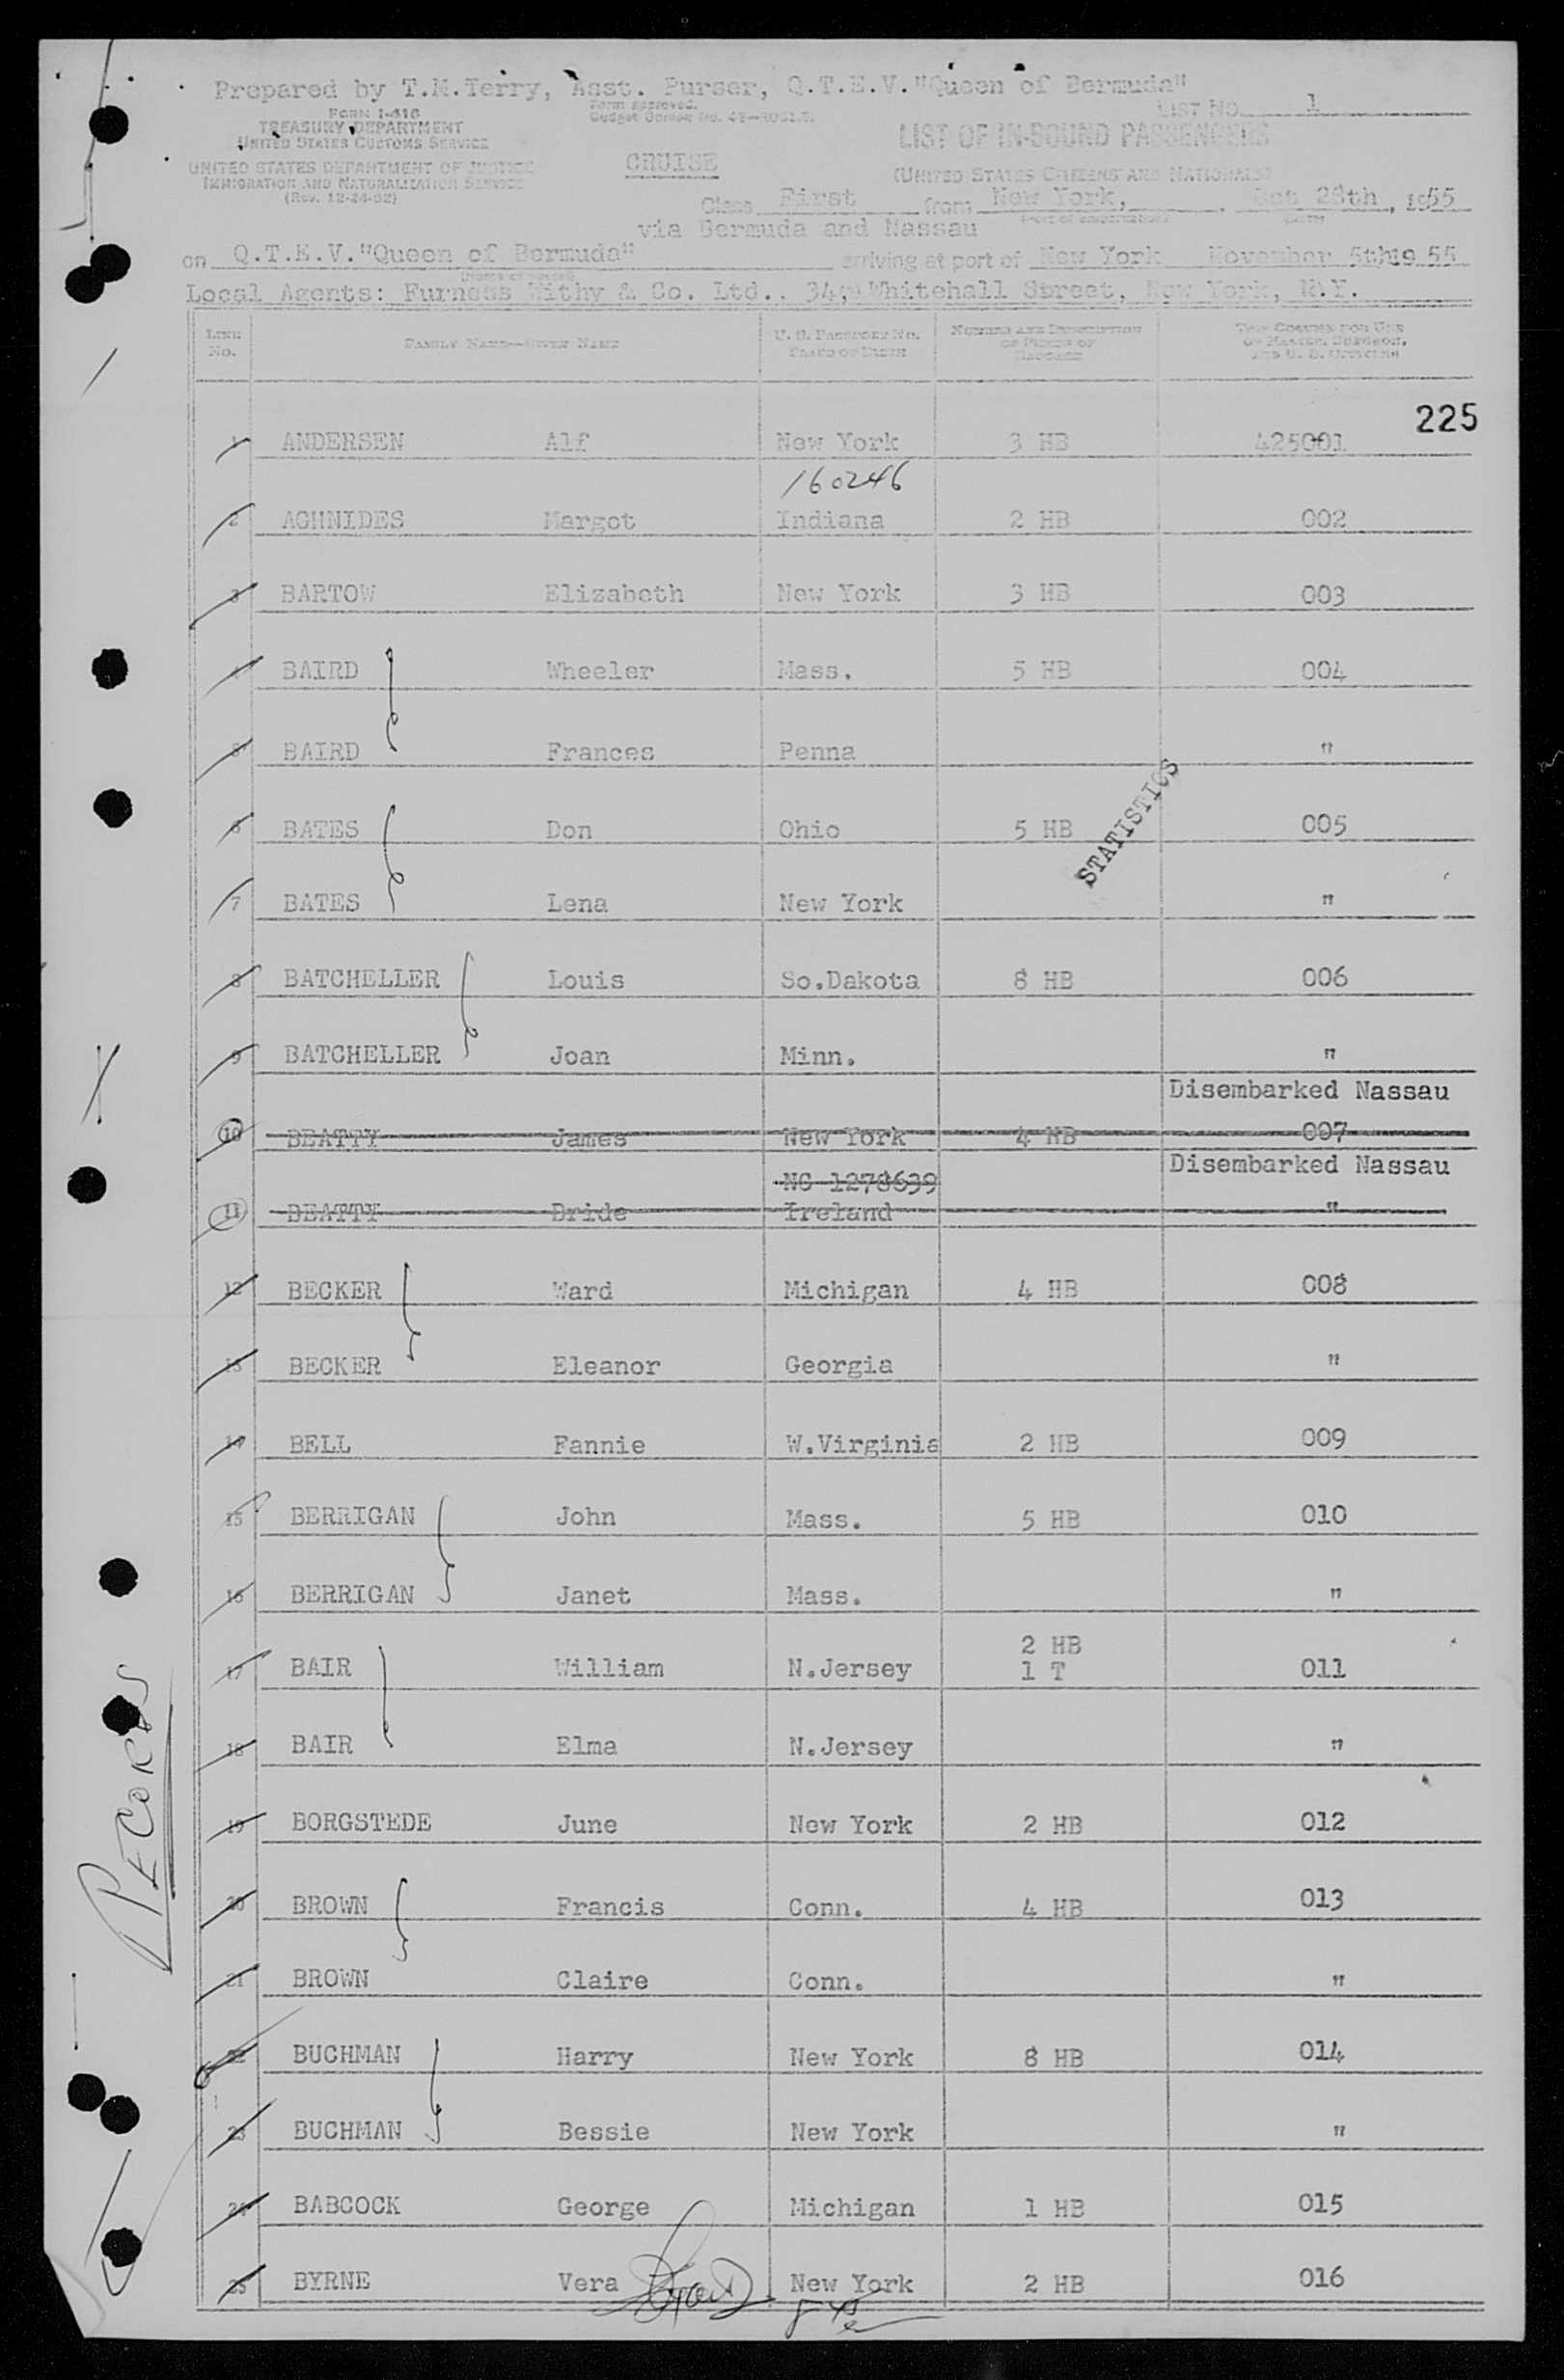 Prepared by T.M.Terry, Asst. Purser, Q.T.E.V."Queen of Bermuda"
LIST NO. 1
FORM I-418
TREASURY DEPARTMENT
UNITED STATES CUSTOMS SERVICE
UNITED STATES DEPARTMENT OF JUSTICE
IMMIGRATION AND NATURALIZATION SERVICE
Form approved.
CRUISE
LIST OF IN-BOUND PASSENGERS
(UNITED STATES CITIZENS AND NATIONALS)
Class First from New York, Oct 28th, 1955
via Bermuda and Nassau
on Q.T.E.V."Queen of Bermuda" arriving at port of New York November 5th 1955
Local Agents: Furness Withy & Co. Ltd., 34, Whitehall Street, New York, N.Y.
LINE No. FAMILY NAME—GIVEN NAME U. S. PASSPORT No. PLACE OF BIRTH NUMBER AND DESCRIPTION OF PIECES OF BAGGAGE THIS COLUMN FOR USE OF MASTER, SURGEON, AND U. S. OFFICERS
225
1 ANDERSEN Alf New York 3 HB 425001
160246
2 AGHNIDES Margot Indiana 2 HB 002
3 BARTOW Elizabeth New York 3 HB 003
4 BAIRD Wheeler Mass. 5 HB 004
5 BAIRD Frances Penna "
STATISTICS
6 BATES Don Ohio 5 HB 005
7 BATES Lena New York "
8 BATCHELLER Louis So.Dakota 8 HB 006
9 BATCHELLER Joan Minn. "
Disembarked Nassau
10 BEATTY James New York 4 HB 007
Disembarked Nassau
NC 1278639
11 BEATTY Bride Ireland "
12 BECKER Ward Michigan 4 HB 008
13 BECKER Eleanor Georgia "
14 BELL Fannie W.Virginia 2 HB 009
15 BERRIGAN John Mass. 5 HB 010
16 BERRIGAN Janet Mass. "
2 HB
17 BAIR William N.Jersey 1 T 011
18 BAIR Elma N.Jersey "
19 BORGSTEDE June New York 2 HB 012
20 BROWN Francis Conn. 4 HB 013
21 BROWN Claire Conn. "
22 BUCHMAN Harry New York 8 HB 014
23 BUCHMAN Bessie New York "
24 BABCOCK George Michigan 1 HB 015
25 BYRNE Vera New York 2 HB 016
RECORDS